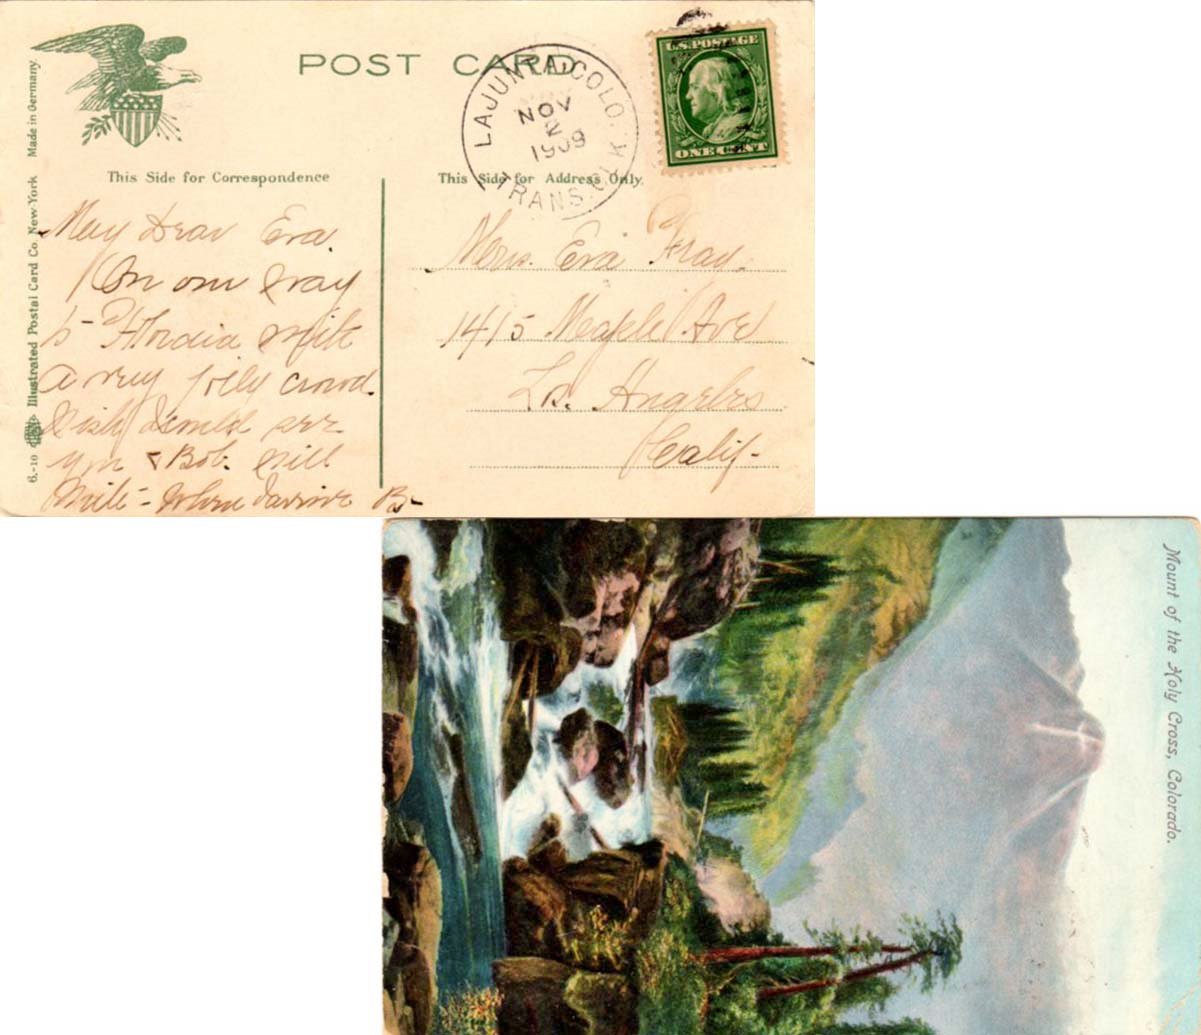 POST CARD
U.S. POSTAGE
ONE CENT
LAJUNTA, COLO.
NOV
2
1909
TRANS. CLK
This Side for Correspondence
This Side for Address Only.
May Dear Eva.
On our way
to Florida with
a very jolly crowd
Wish I could see
you & Bob. will
write - when I arrive B-
Mrs. Eva Fray.
1415 Maple Ave
Los Angeles
Calif-
6.-10 Illustrated Postal Card Co. New-York Made in Germany.
Mount of the Holy Cross, Colorado.